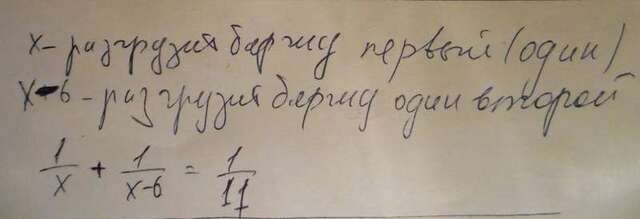 x – разгрузит баржу первый (один)
x-6 – разгрузит баржу один второй
1/x + 1/(x-6) = 1/11